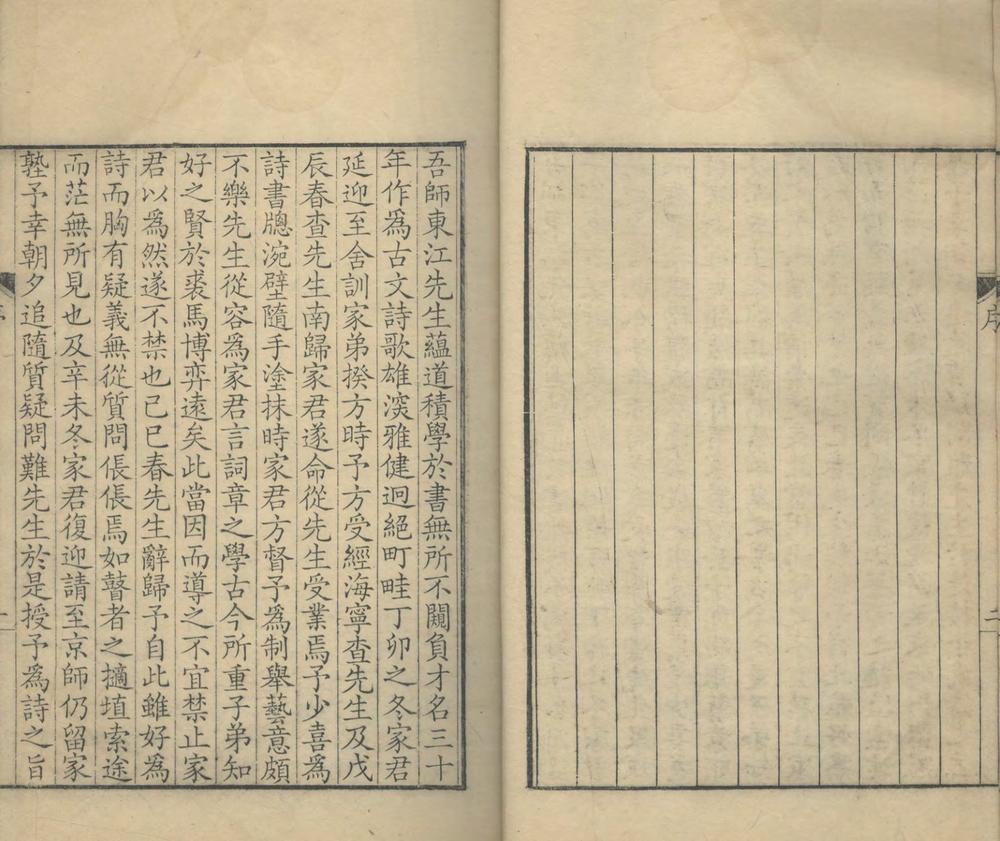 序
二
吾師東江先生蘊道積學於書無所不闚負才名三十
年作爲古文詩歌雄深雅健迥絕町畦丁卯之冬家君
延迎至舍訓家弟揆方時予方受經海寧查先生及戊
辰春查先生南歸家君遂命從先生受業焉予少喜爲
詩書牕涴壁隨手塗抹時家君方督予爲制舉藝意頗
不樂先生從容爲家君言詞章之學古今所重子弟知
好之賢於裘馬博弈遠矣此當因而導之不宜禁止家
君以爲然遂不禁也己巳春先生辭歸予自此雖好爲
詩而胸有疑義無從質問倀倀焉如瞽者之擿埴索途
而茫無所見也及辛未冬家君復迎請至京師仍留家
塾予幸朝夕追隨質疑問難先生於是授予爲詩之旨